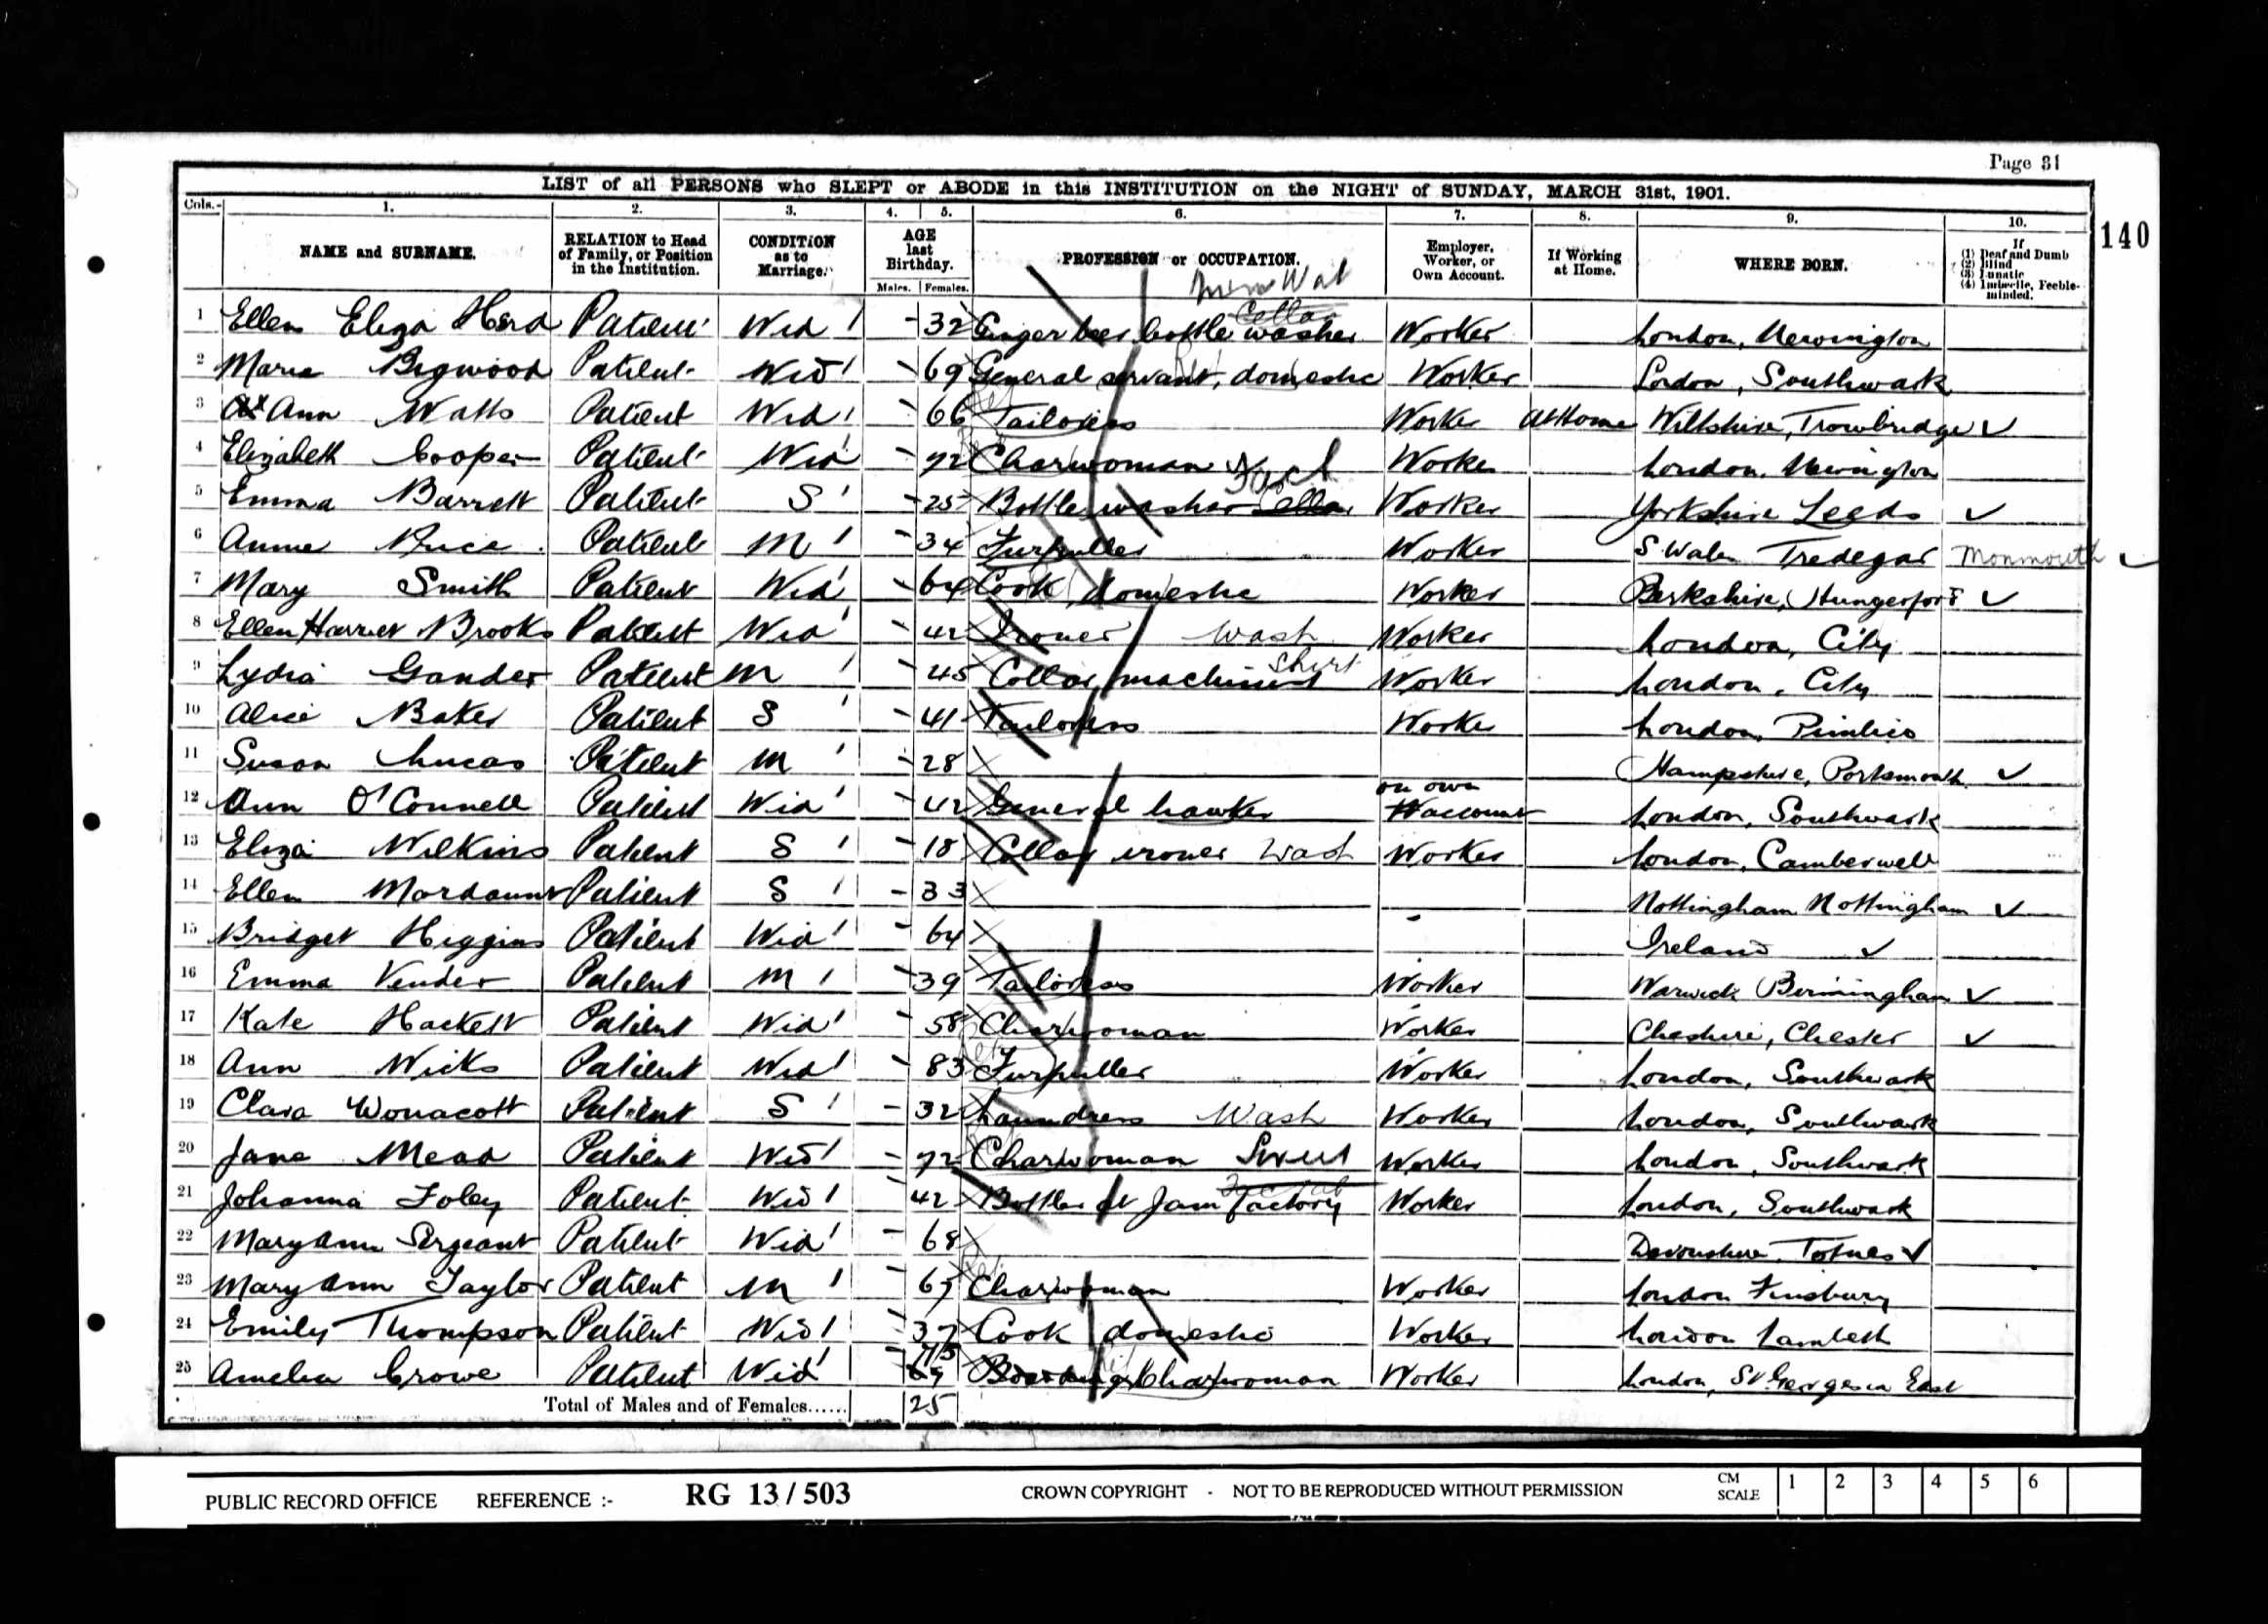 Page 31
LIST of all PERSONS who SLEPT or ABODE in this INSTITUTION on the NIGHT of SUNDAY, MARCH 31st, 1901.
140
Cols.- 1. 2. 3. 4. 5. 6. 7. 8. 9. 10.
NAME and SURNAME. RELATION to Head of Family, or Position in the Institution. CONDITION as to Marriage. AGE last Birthday. PROFESSION or OCCUPATION. Employer, Worker, or Own Account. If Working at Home. WHERE BORN. If (1) Deaf and Dumb (2) Blind (3) Lunatic (4) Imbecile, Feeble-minded.
Males. Females.
1 Ellen Eliza Patient Wid 32 Ginger beer bottle washer Worker London, Newington
2 Maria Bigwood Patient Wid 69 General servant, domestic Worker London, Southwark
3 Ann Watts Patient Wid 66 Tailoress Worker At Home Wiltshire, Trowbridge
4 Elizabeth Cooper Patient Wid 72 Charwoman Worker London, Newington
5 Emma Barrett Patient S 25 Bottle washer Worker Yorkshire Leeds
6 Annie Price Patient M 34 Furpuller Worker S. Wales Tredegar Monmouth
7 Mary Smith Patient Wid 64 Cook, domestic Worker Berkshire, Hungerford
8 Ellen Harriet Brooks Patient Wid 42 Ironer Wash Worker London, City
9 Lydia Gander Patient M 45 Collar machinist Shirt Worker London, City
10 Alice Baker Patient S 41 Tailoress Worker London, Pimlico
11 Susan Lucas Patient M 28 Hampshire, Portsmouth
12 Ann O'Connell Patient Wid 42 General hawker on own account London, Southwark
13 Eliza Wilkins Patient S 18 Collar ironer Wash Worker London, Camberwell
14 Ellen Mordaunt Patient S 33 Nottingham Nottingham
15 Bridget Higgins Patient Wid 64 Ireland
16 Emma Vender Patient M 39 Tailoress Worker Warwick Birmingham
17 Kate Hackett Patient Wid 58 Charwoman Worker Cheshire, Chester
18 Ann Wicks Patient Wid 83 Furpuller Worker London, Southwark
19 Clara Wonacott Patient S 32 Laundress Wash Worker London, Southwark
20 Jane Mead Patient Wid 72 Charwoman Worker London, Southwark
21 Johanna Foley Patient Wid 42 Bottler at Jam factory Worker London, Southwark
22 Mary Ann Sergeant Patient Wid 68 Devonshire, Totnes
23 Mary Ann Taylor Patient M 67 Charwoman Worker London Finsbury
24 Emily Thompson Patient Wid 37 Cook domestic Worker London Lambeth
25 Amelia Crowe Patient Wid Charwoman Worker London, St Georges in East
Total of Males and of Females...... 25
PUBLIC RECORD OFFICE REFERENCE :- RG 13/503 CROWN COPYRIGHT - NOT TO BE REPRODUCED WITHOUT PERMISSION CM SCALE 1 2 3 4 5 6